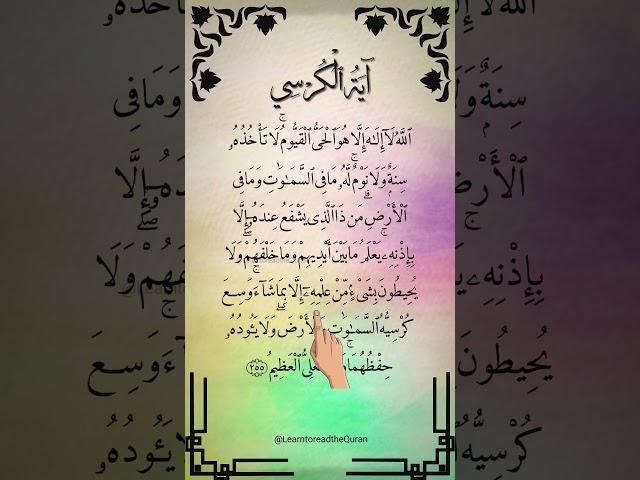 آيَةُ ٱلْكُرْسِي
ٱللَّهُ لَآ إِلَـٰهَ إِلَّا هُوَ ٱلْحَىُّ ٱلْقَيُّومُ ۚ لَا تَأْخُذُهُۥ
سِنَةٌ وَلَا نَوْمٌ ۚ لَّهُۥ مَا فِى ٱلسَّمَـٰوَٰتِ وَمَا فِى
ٱلْأَرْضِ ۗ مَن ذَا ٱلَّذِى يَشْفَعُ عِندَهُۥٓ إِلَّا
بِإِذْنِهِۦ ۚ يَعْلَمُ مَا بَيْنَ أَيْدِيهِمْ وَمَا خَلْفَهُمْ ۖ وَلَا
يُحِيطُونَ بِشَىْءٍ مِّنْ عِلْمِهِۦٓ إِلَّا بِمَا شَآءَ ۚ وَسِعَ
كُرْسِيُّهُ ٱلسَّمَـٰوَٰتِ وَٱلْأَرْضَ ۖ وَلَا يَـُٔودُهُۥ
حِفْظُهُمَا ۚ ٱلْعَظِيمُ ٢٥٥
@LearntoreadtheQuran